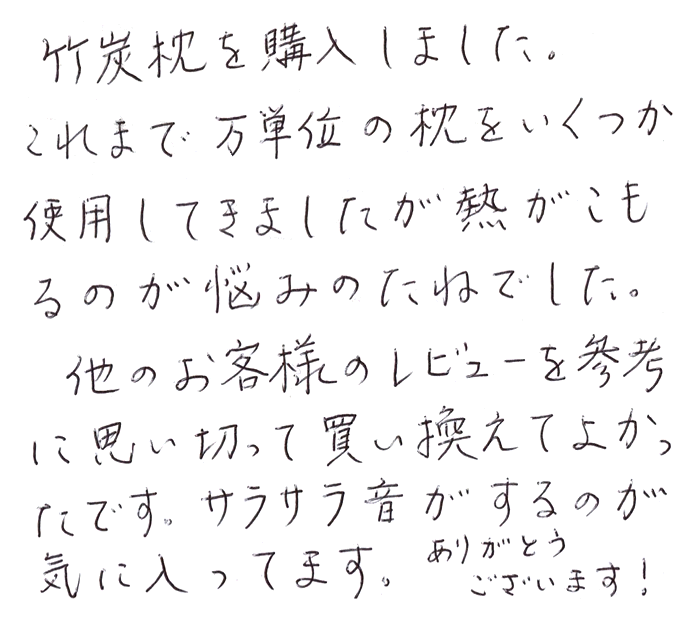 竹炭枕を購入しました。
これまで万単位の枕をいくつか
使用してきましたが熱がこも
るのが悩みのたねでした。
他のお客様のレビューを参考
に思い切って買い換えてよかっ
たです。サラサラ音がするのが
気に入ってます。ありがとう
ございます!